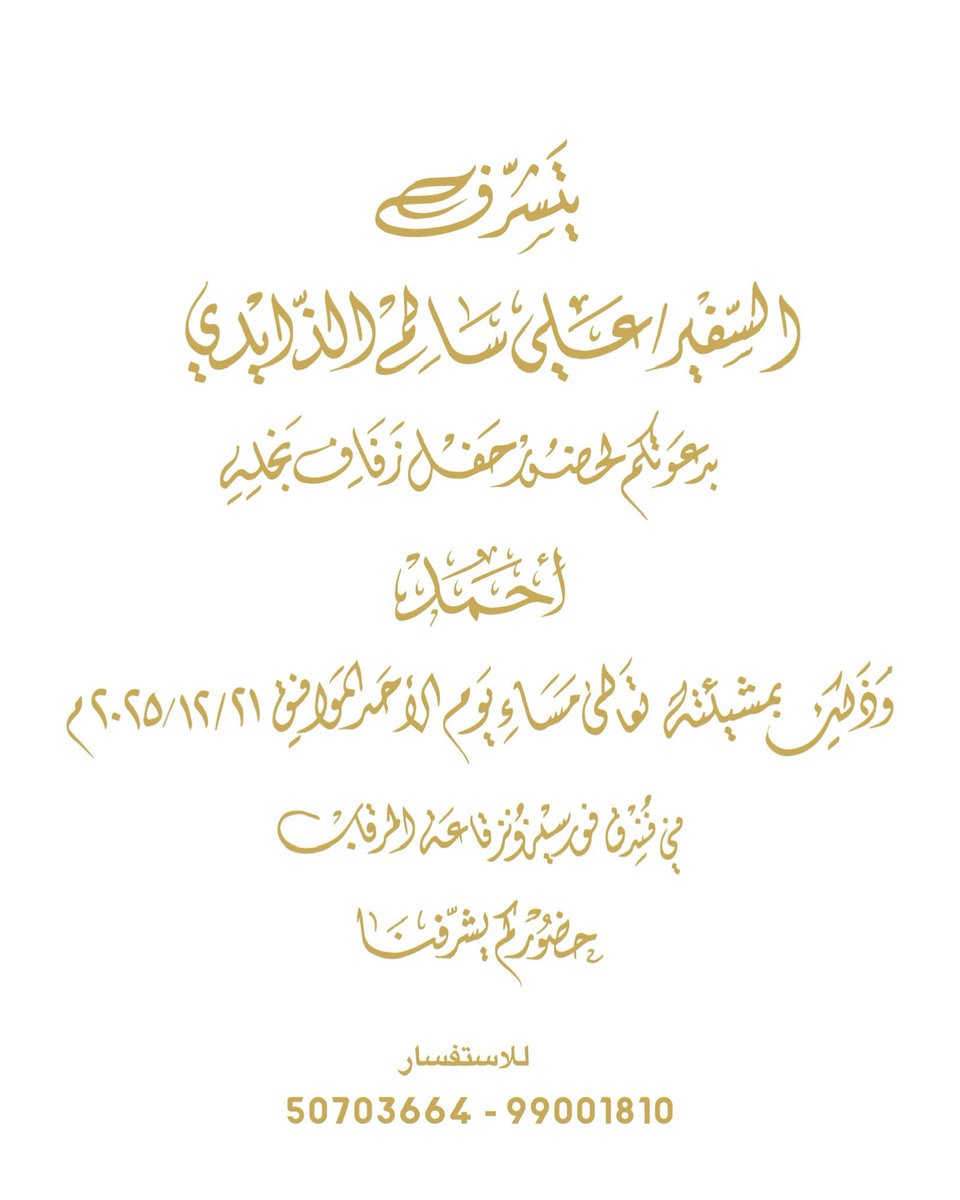 يَتَشَرَّف
السَّفِير / عَلي سَالِم الذَّايْدي
بدعَوتكم لحضُور حَفل زَفَافِ نَجلِهِ
أَحمَد
وَذَلك بمشيئته تعَالى مَسَاءِ يَوم الأحَد الموَافِق ٢٠٢٥/١٢/٢١م
في فُندِق فورسيزونز قاعة المرقاب
حضُوركم يشرّفنَا
للاستفسار
50703664 - 99001810